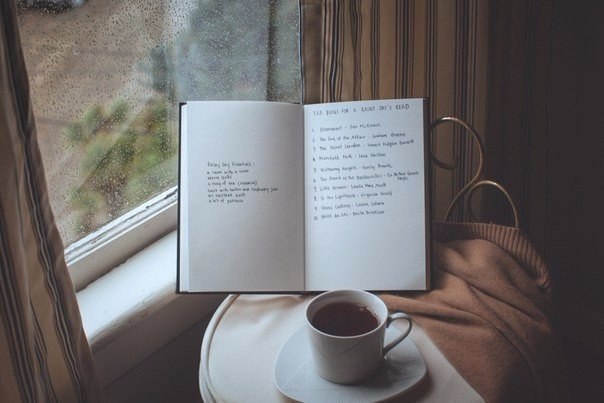 Rainy Day Essentials:
a room with a view
warm socks
a mug of tea (minimum)
toast with butter and raspberry jam
an excellent book
a bit of patience
TEN BOOKS FOR A RAINY DAY'S READ
1 Atonement - Ian McEwan
2 The End of the Affair - Graham Greene
3 The Secret Garden - Frances Hodgson Burnett
4 Mansfield Park - Jane Austen
5 Wuthering Heights - Emily Brontë
6 The Hound of the Baskervilles - Sir Arthur Conan
Doyle
7 Little Women - Louisa May Alcott
8 To the Lighthouse - Virginia Woolf
9 Home Cooking - Laurie Colwin
10 Hotel du Lac - Anita Brookner